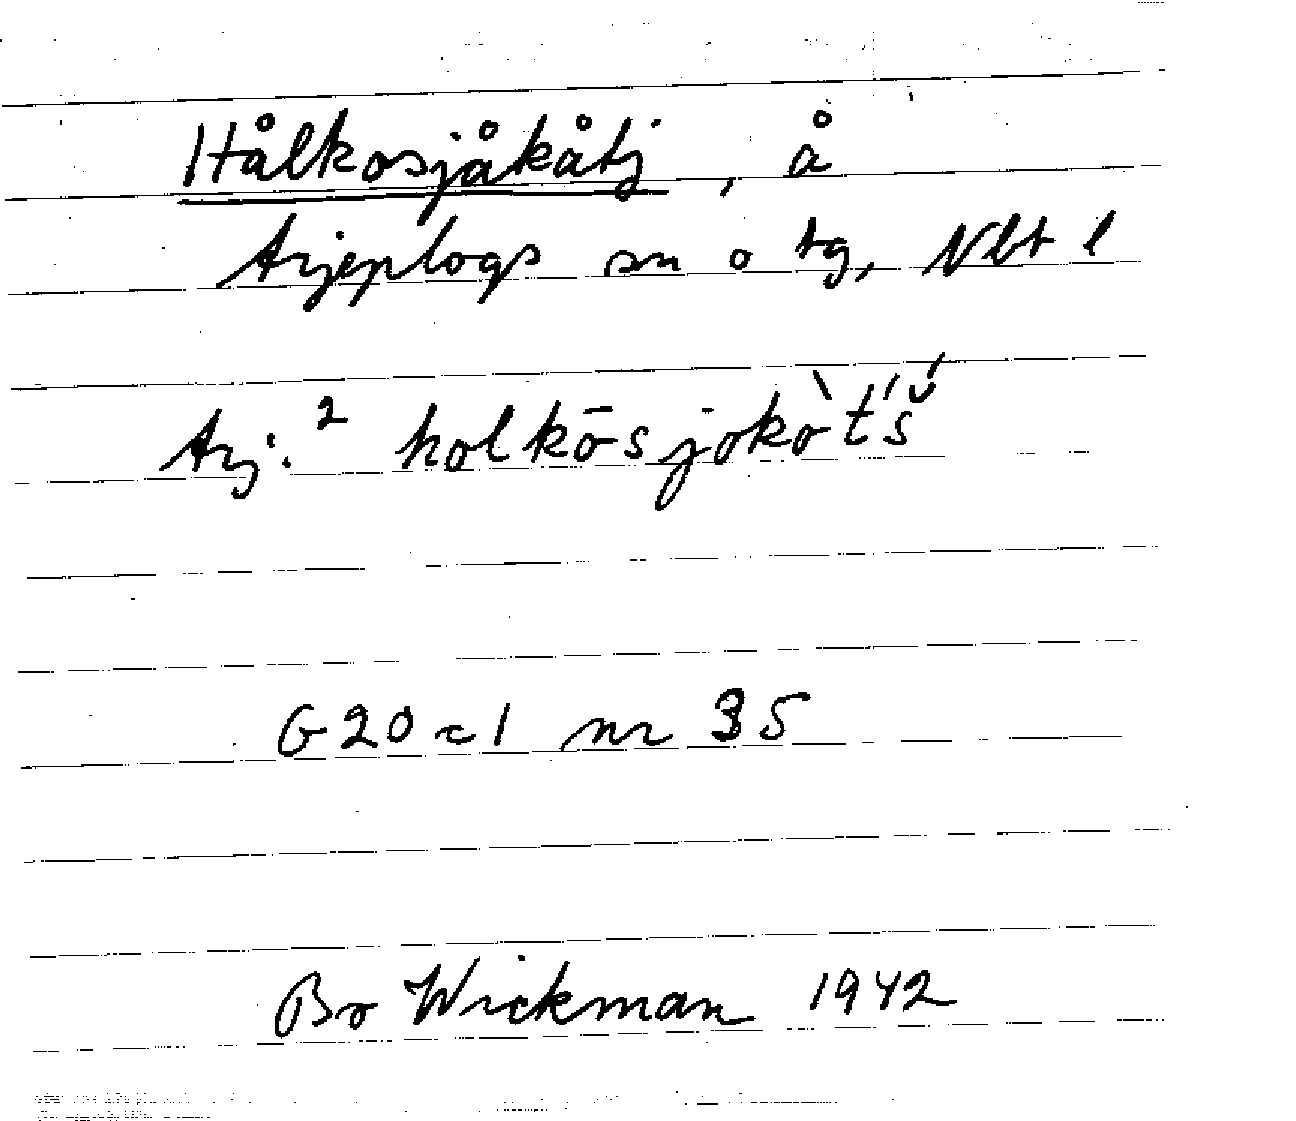 Hålkosjåkåtj, å
Arjeplogs sn o tg, Nbt l
Arj.² holkōsjokòt́š́
G20c1 nr 35
Bo Wickman 1942